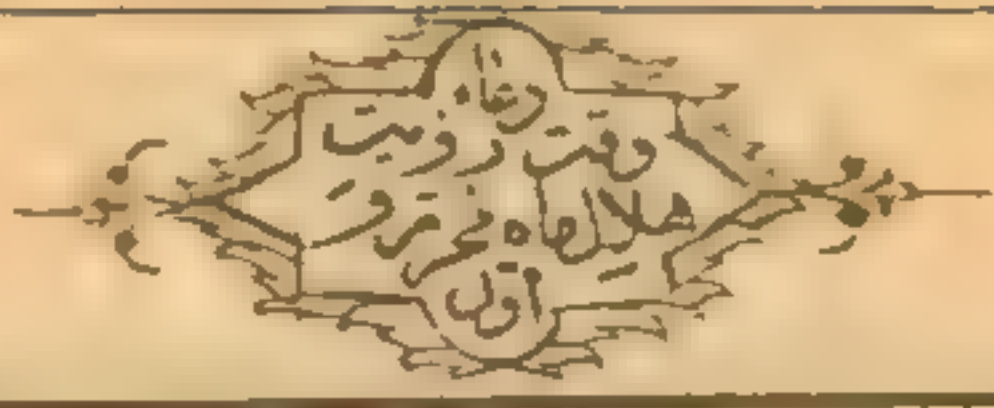 دعاء
وقت رؤيت
هلال ماه محرم و
اول